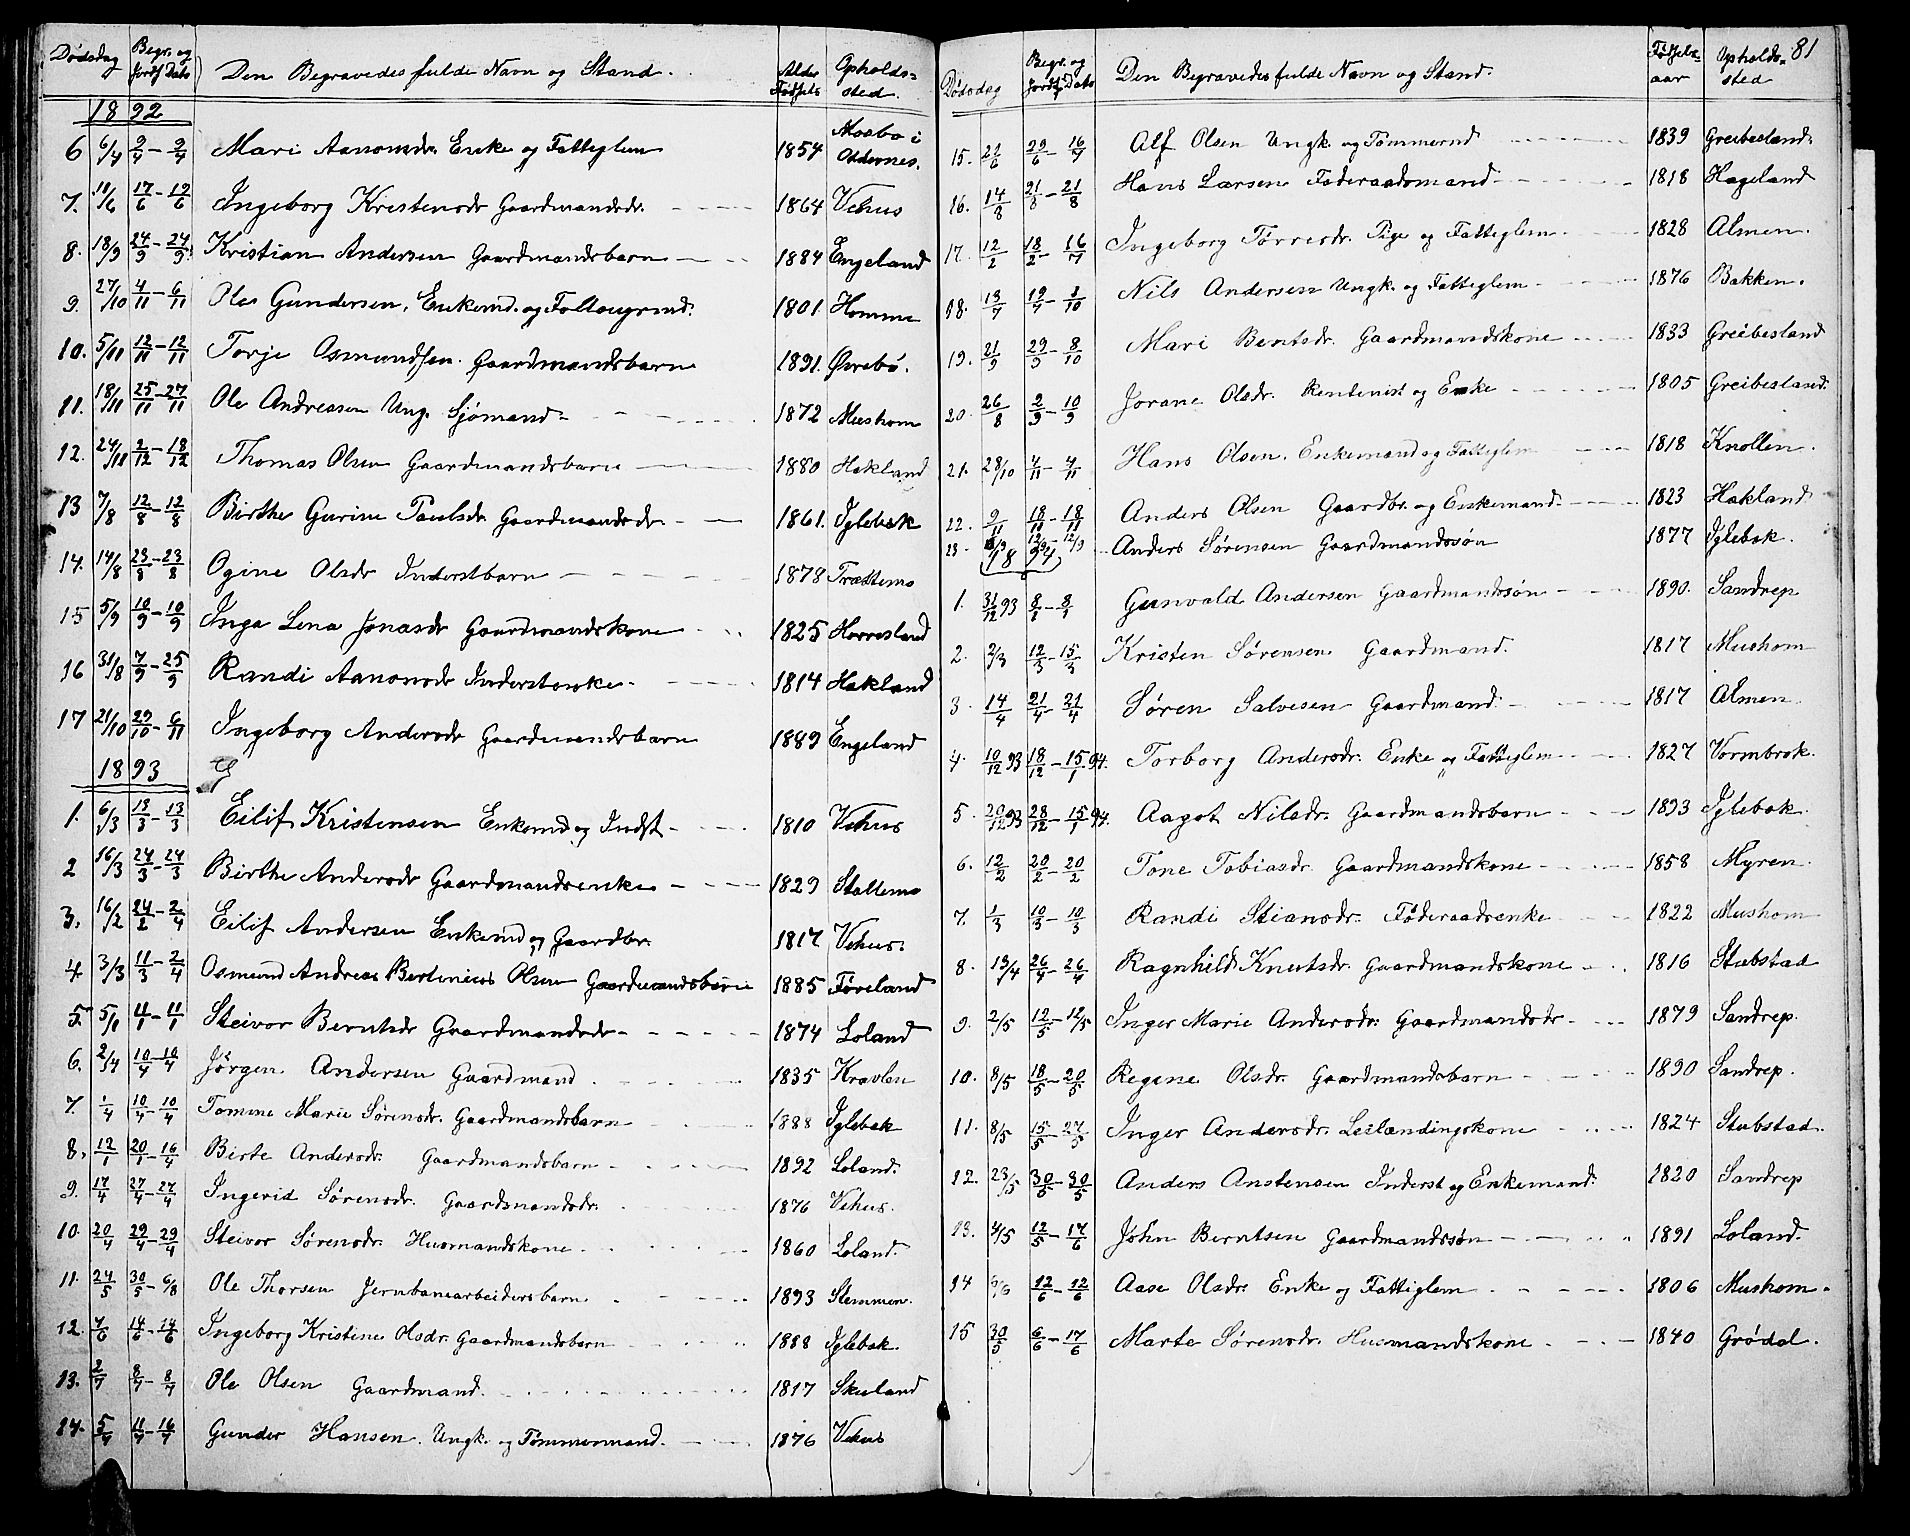 Dødsdag Begr. og Jordf Dato Den Begravedes fulde Navn og Stand. Alder Fødsels Opholds= sted.
1892
6 6/4 9/4 – 9/4 Mari Aanonsdr. Enke og Fattiglem 1854 Mosbo i Oddernes.
7. 11/6 17/6 – 19/6 Ingeborg Kristensdr Gaardmandsdr. 1864 Vehus
8. 18/9 24/9 – 24/9 Kristian Andersen Gaardmandsbarn 1884 Engeland
9. 27/10 4/11 – 6/11 Ole Gundersen, Enkemd. og 1801 Homme
10. 5/11 12/11 – 12/11 Torje Osmundsen Gaardmandsbarn 1891. Øvrebø.
11. 18/11 25/11 – 27/11 Ole Andreasen Ung. Sjømand 1872 Mushom
12. 24/11 2/12 – 18/12 Thomas Olsen Gaardmandsbarn 1880 Hakland
13 7/8 12/8 – 12/8 Birthe Gurine Paulsdr Gaardmandsdr 1861. Iglebæk
14. 14/8 23/8 – 23/8 Ogine Olsdr Inderstbarn 1878 Trættemo
15 5/9 10/9 – 10/9 Inga Lena Jonasdr Gaardmandskone 1825 Horrisland
16 31/8 7/9 – 25/9 Randi Aanonsdr Inderstenke 1814 Hakland
17 21/10 29/10 – 6/11 Ingeborg Andersdr Gaardmandsbarn 1889 Engeland
1893
1. 6/3 13/3 – 13/3 Eilif Kristensen Enkemd og Indst 1810 Vehus
2 16/3 24/3 – 24/3 Birthe Andersdr Gaardmandsenke 1829 Stallemo
3. 16/2 24/2 – 2/4 Eilif Andersen Enkemd og Gaardbr. 1817 Vehus.
4 3/3 11/3 – 2/4 Osmund Andreas Bertinius Olsen Gaardmandsbarn 1885 Føreland
5. 5/1 11/1 – 11/1 Steivor Berntsdr Gaardmandsdr 1874 Loland
6. 2/4 10/4 – 10/4 Jørgen Andersen Gaardmand 1835 Kravlen
7. 1/4 10/4 – 10/4 Tomine Marie Sørensdr. Gaardmandsbarn 1888 Iglebæk
8. 12/1 20/1 – 16/4 Birte Andersdr. Gaardmandsbarn 1892 Loland.
9. 17/4 27/4 – 27/4 Ingerid Sørensdr. Gaardmandsdr. 1876 Vehus.
10. 20/4 29/4 – 29/4 Steivor Sørensdr. Husmandskone 1860 Loland.
11. 24/5 30/5 – 6/8 Ole Thorsen Jernbanearbeidersbarn 1893 Stemmen.
12. 7/6 14/6 – 14/6 Ingeborg Kristine Olsdr. Gaardmandsbarn 1888 Iglebæk.
13. 2/7 8/7 – 8/7 Ole Olsen Gaardmand 1817 Skuland
14. 5/7 11/7 – 16/7 Gunder Hansen. Ungk. og Tømmermand. 1876 Vehus
81
Dødsdag Begr. og Jordf Dato Den Begravedes fulde Navn og Stand. Fødsels= aar Opholds= sted
15. 22/6 29/6 – 16/7 Alf Olsen Ungk. og Tømmermd 1839 Greibesland.
16. 14/8 21/8 – 21/8 Hans Larsen Føderaadsmand 1818 Hageland
17. 12/2 18/2 – 16/7 Ingeborg Tørresdr. Pige og Fattiglem 1828 Almen.
18. 13/7 19/7 – 1/10 Nils Andersen Ungk. og Fattiglem 1876 Bakken.
19. 21/9 29/9 – 8/10 Mari Berntsdr. Gaardmandskone 1833 Greibesland
20. 26/8 2/9 – 10/9 Jorane Olsdr. Rentenist og Enke 1805 Greibesland.
21. 28/10 4/11 – 4/11 Hans Olsen. Enkemand og Fattiglem 1818 Knollen.
22. 9/11 18/11 – 18/11 Anders Olsen Gaardbr. og Enkemand. 1823 Hakland
23. 12/9 – 12/9 Anders Sørensen Gaardmandssøn 1877 Iglebæk.
1894
1. 31/12 93 8/1 – 8/1 Gunvald Andersen Gaardmandssøn 1890. Sandrep
2. 2/3 12/3 – 15/3 Kristen Sørensen Gaardmand. 1817 Mushom
3. 14/4 21/4 – 21/4 Søren Salvesen Gaardmand. 1817 Almen.
4. 10/12 93 18/12 – 15/1 94. Torborg Andersdr. Enke og Fattiglem 1827 Vormbrok.
5. 20/12 93 28/12 – 15/1 94. Aagot Nilsdr. Gaardmandsbarn 1893 Iglebæk.
6. 12/2 20/2 – 20/2 Tone Tobiasdr. Gaardmandskone 1858 Myren.
7. 1/3 10/3 – 10/3 Randi Stiansdr. Føderaadsenke 1822 Mushom
8. 19/4 26/4 – 26/4 Ragnhild Knutsdr. Gaardmandskone 1816 Stubstad
9. 2/5 12/5 – 12/5 Inger Marie Andersdr. Gaardmandsdr 1879 Sandrep.
10. 8/5 18/5 – 20/5 Regine Olsdr. Gaardmandsbarn 1890 Sandrep.
11. 8/5 15/5 – 27/5 Inger Andersdr. Leilændingskone 1824 Stubstad.
12. 23/5 30/5 – 30/5 Anders Anstensen Inderst og Enkemand. 1820 Sandrep
13. 4/5 12/5 – 17/6 John Berntsen Gaardmandssøn 1891 Loland.
14 5/6 12/6 – 12/6 Aase Olsdr. Enke og Fattiglem 1806 Mushom.
15 30/5 6/6 – 17/6 Marte Sørensdr. Husmandskone 1840 Grødal.